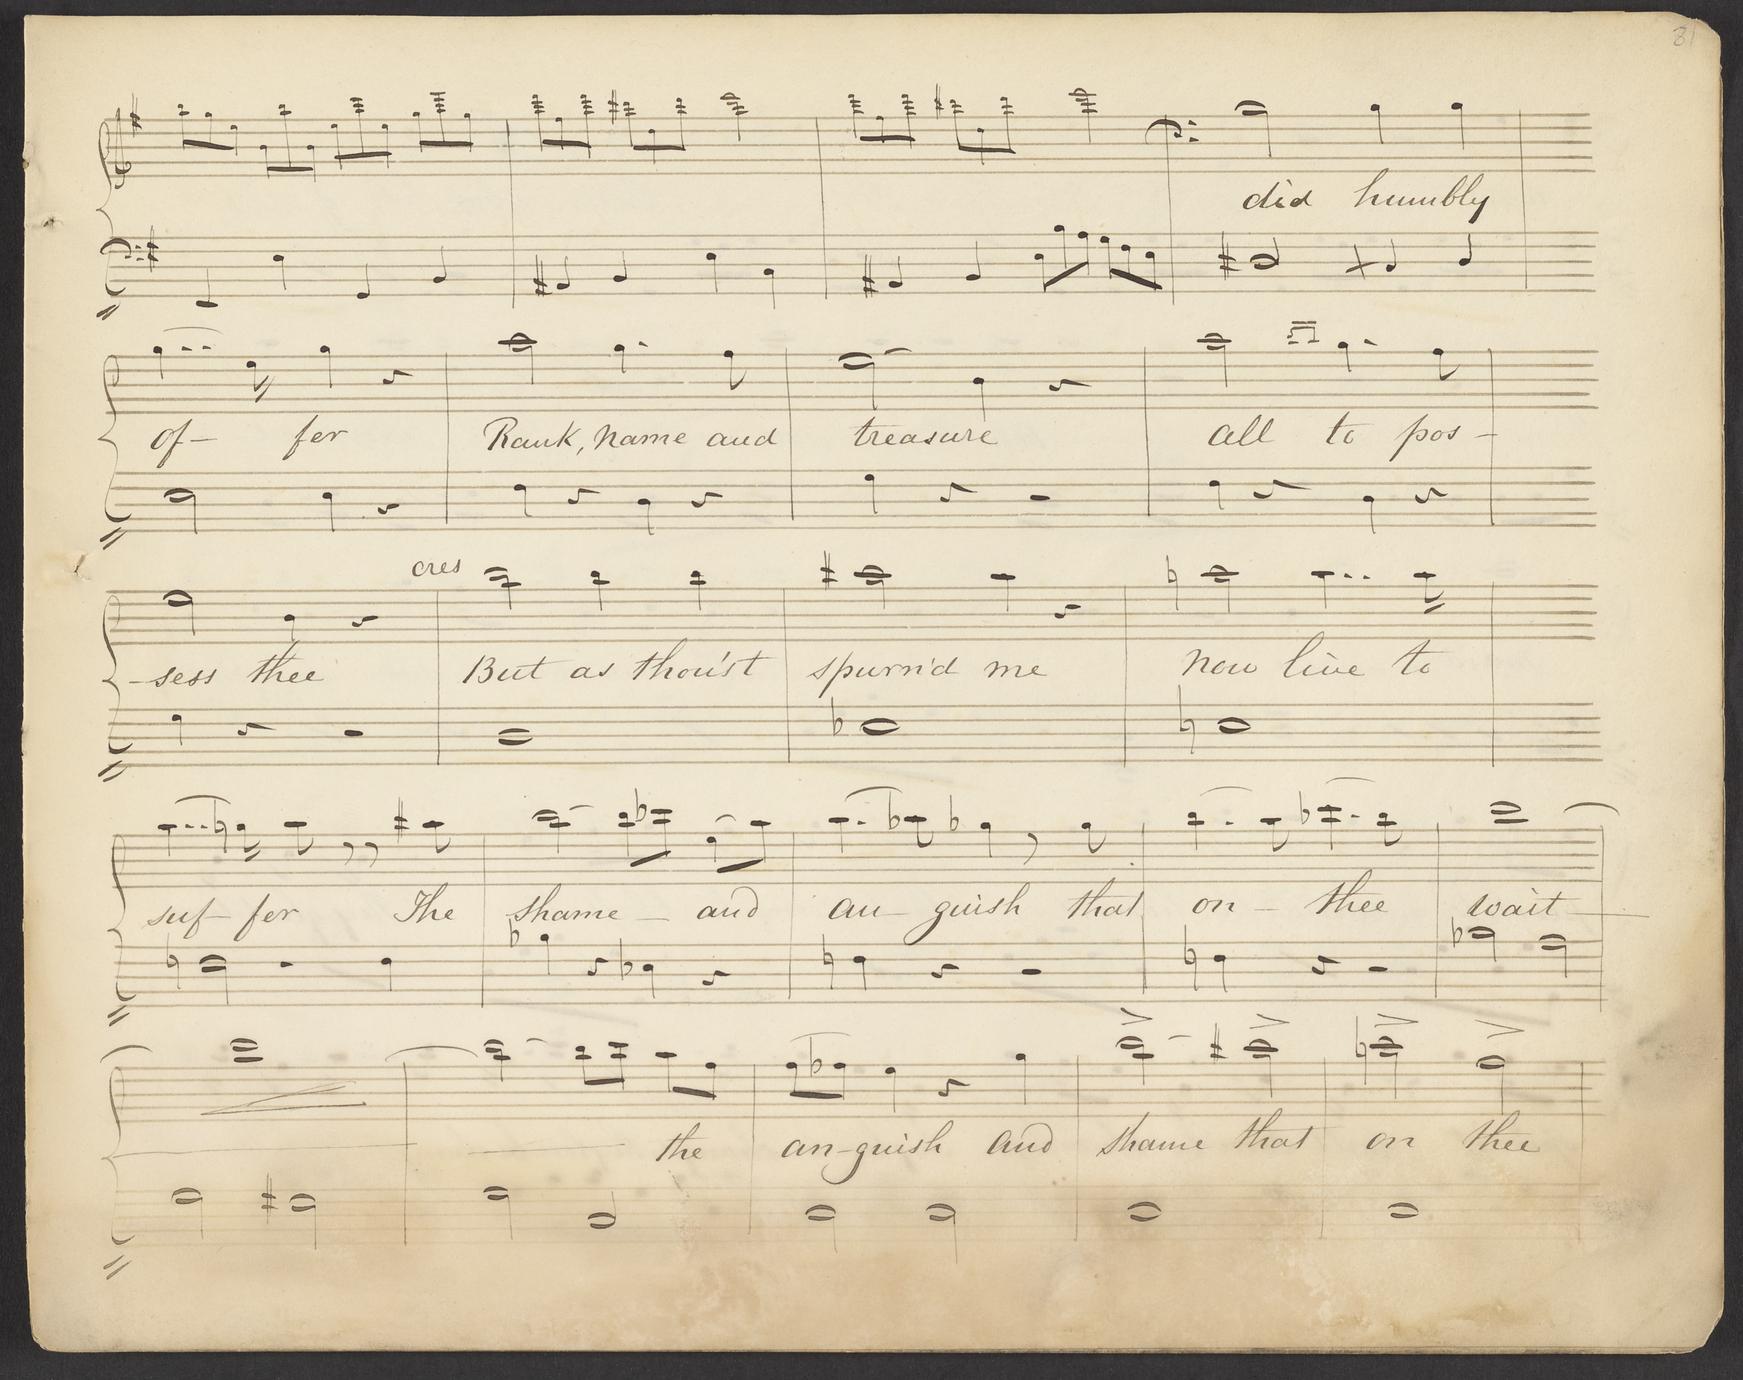 81
did humbly
of- fer Rank, name and treasure all to pos-
cres
-sess thee But as thou'st spurn'd me now live to
suf- fer The shame - and an- guish that on - thee wait
the an-guish and shame that on thee